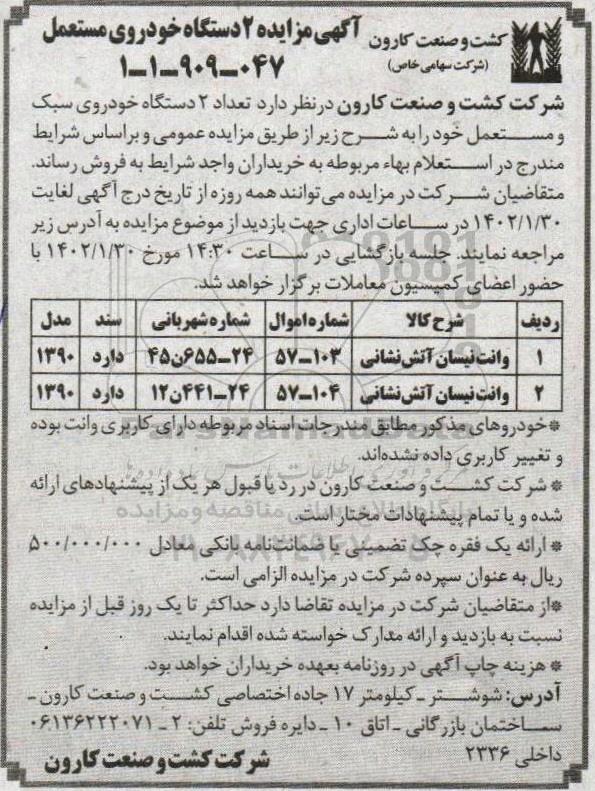 آگهی مزایده ۲ دستگاه خودروی مستعمل
۱-۱-۹۰۹-۰۴۷
کشت و صنعت کارون
(شرکت سهامی خاص)
شرکت کشت و صنعت کارون در نظر دارد تعداد ۲ دستگاه خودروی سبک
و مستعمل خود را به شرح زیر از طریق مزایده عمومی و براساس شرایط
مندرج در استعلام بهاء مربوطه به خریداران واجد شرایط به فروش رساند.
متقاضیان شرکت در مزایده می‌توانند همه روزه از تاریخ درج آگهی لغایت
۱۴۰۲/۱/۳۰ در ساعات اداری جهت بازدید از موضوع مزایده به آدرس زیر
مراجعه نمایند. جلسه بازگشایی در ساعت ۱۴:۳۰ مورخ ۱۴۰۲/۱/۳۰ با
حضور اعضای کمیسیون معاملات برگزار خواهد شد.
ردیف شرح کالا شماره اموال شماره شهربانی سند مدل
۱ وانت نیسان آتش نشانی ۱۰۳-۵۷ ۲۴-۶۵۵ن۴۵ دارد ۱۳۹۰
۲ وانت نیسان آتش نشانی ۱۰۴-۵۷ ۲۴-۴۴۱ن۱۲ دارد ۱۳۹۰
*خودروهای مذکور مطابق مندرجات اسناد مربوطه دارای کاربری وانت بوده
و تغییر کاربری داده نشده‌اند.
* شرکت کشت و صنعت کارون در رد یا قبول هر یک از پیشنهادهای ارائه
شده و یا تمام پیشنهادات مختار است.
* ارائه یک فقره چک تضمینی یا ضمانت‌نامه بانکی معادل ۵۰۰/۰۰۰/۰۰۰
ریال به عنوان سپرده شرکت در مزایده الزامی است.
*از متقاضیان شرکت در مزایده تقاضا دارد حداکثر تا یک روز قبل از مزایده
نسبت به بازدید و ارائه مدارک خواسته شده اقدام نمایند.
* هزینه چاپ آگهی در روزنامه بعهده خریداران خواهد بود.
آدرس: شوشتر - کیلومتر ۱۷ جاده اختصاصی کشت و صنعت کارون -
ساختمان بازرگانی - اتاق ۱۰ - دایره فروش تلفن: ۲ - ۰۶۱۳۶۲۲۲۰۷۱
داخلی ۲۳۳۶
شرکت کشت و صنعت کارون